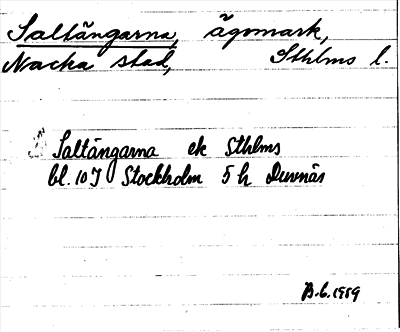 Saltängarna, ägomark,
Nacka stad, Sthlms l.
Saltängarna ek Sthlms
bl. 10 I Stockholm 5 h Duvnäs
B.G. 1959